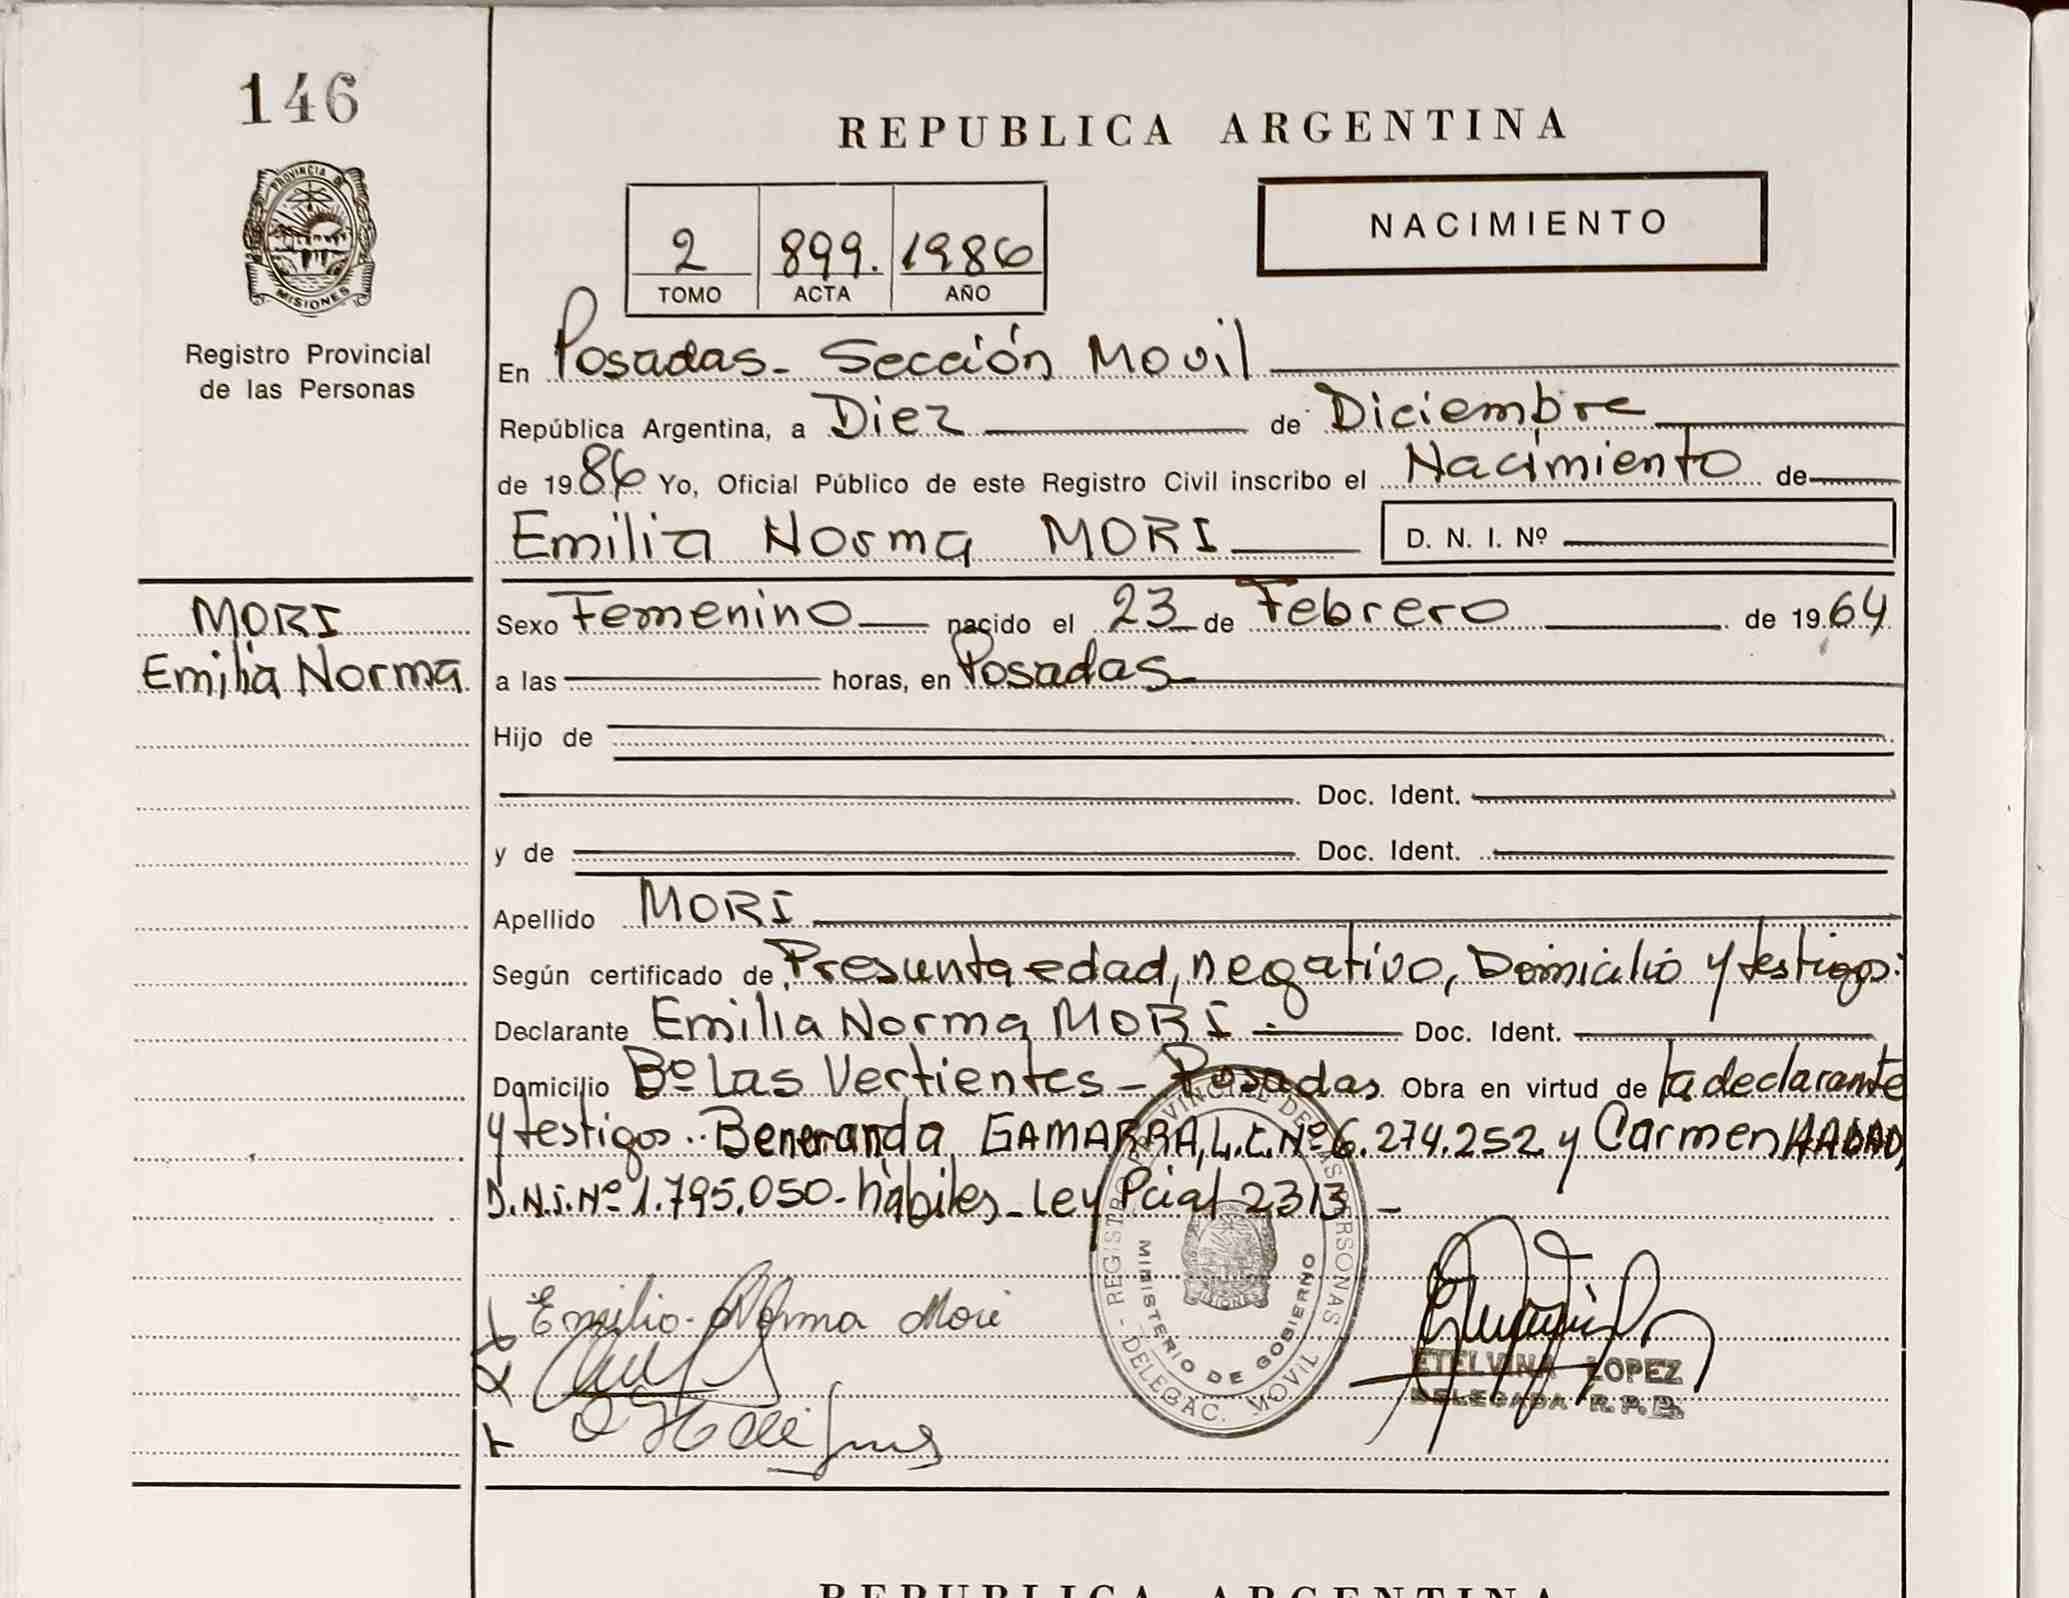 146
PROVINCIA DE
MISIONES
Registro Provincial
de las Personas
REPUBLICA ARGENTINA
NACIMIENTO
2 899. 1986
TOMO ACTA AÑO
En Posadas - Sección Movil
República Argentina, a Diez de Diciembre
de 1986 Yo, Oficial Público de este Registro Civil inscribo el Nacimiento de
Emilia Norma MORI D. N. I. Nº
MORI
Emilia Norma
Sexo Femenino nacido el 23 de Febrero de 1964
a las horas, en Posadas
Hijo de
Doc. Ident.
y de Doc. Ident.
Apellido MORI
Según certificado de Presunta edad, negativo, Domicilio y testigos.
Declarante Emilia Norma MORI . Doc. Ident.
Domicilio Bº Las Vertientes - Posadas Obra en virtud de la declarante
y testigos.. Beneranda GAMARRA, L.C. Nº 6.274.252 y Carmen
D.N.I. Nº 1.795.050 - hábiles - Ley Pcial 2313 -
Emilia Norma Mori
REGISTRO PROVINCIAL DE LAS PERSONAS - DELEGAC. MOVIL
MINISTERIO DE GOBIERNO
MISIONES
ETELVINA LOPEZ
DELEGADA R.P.P.
REPUBLICA ARGENTINA